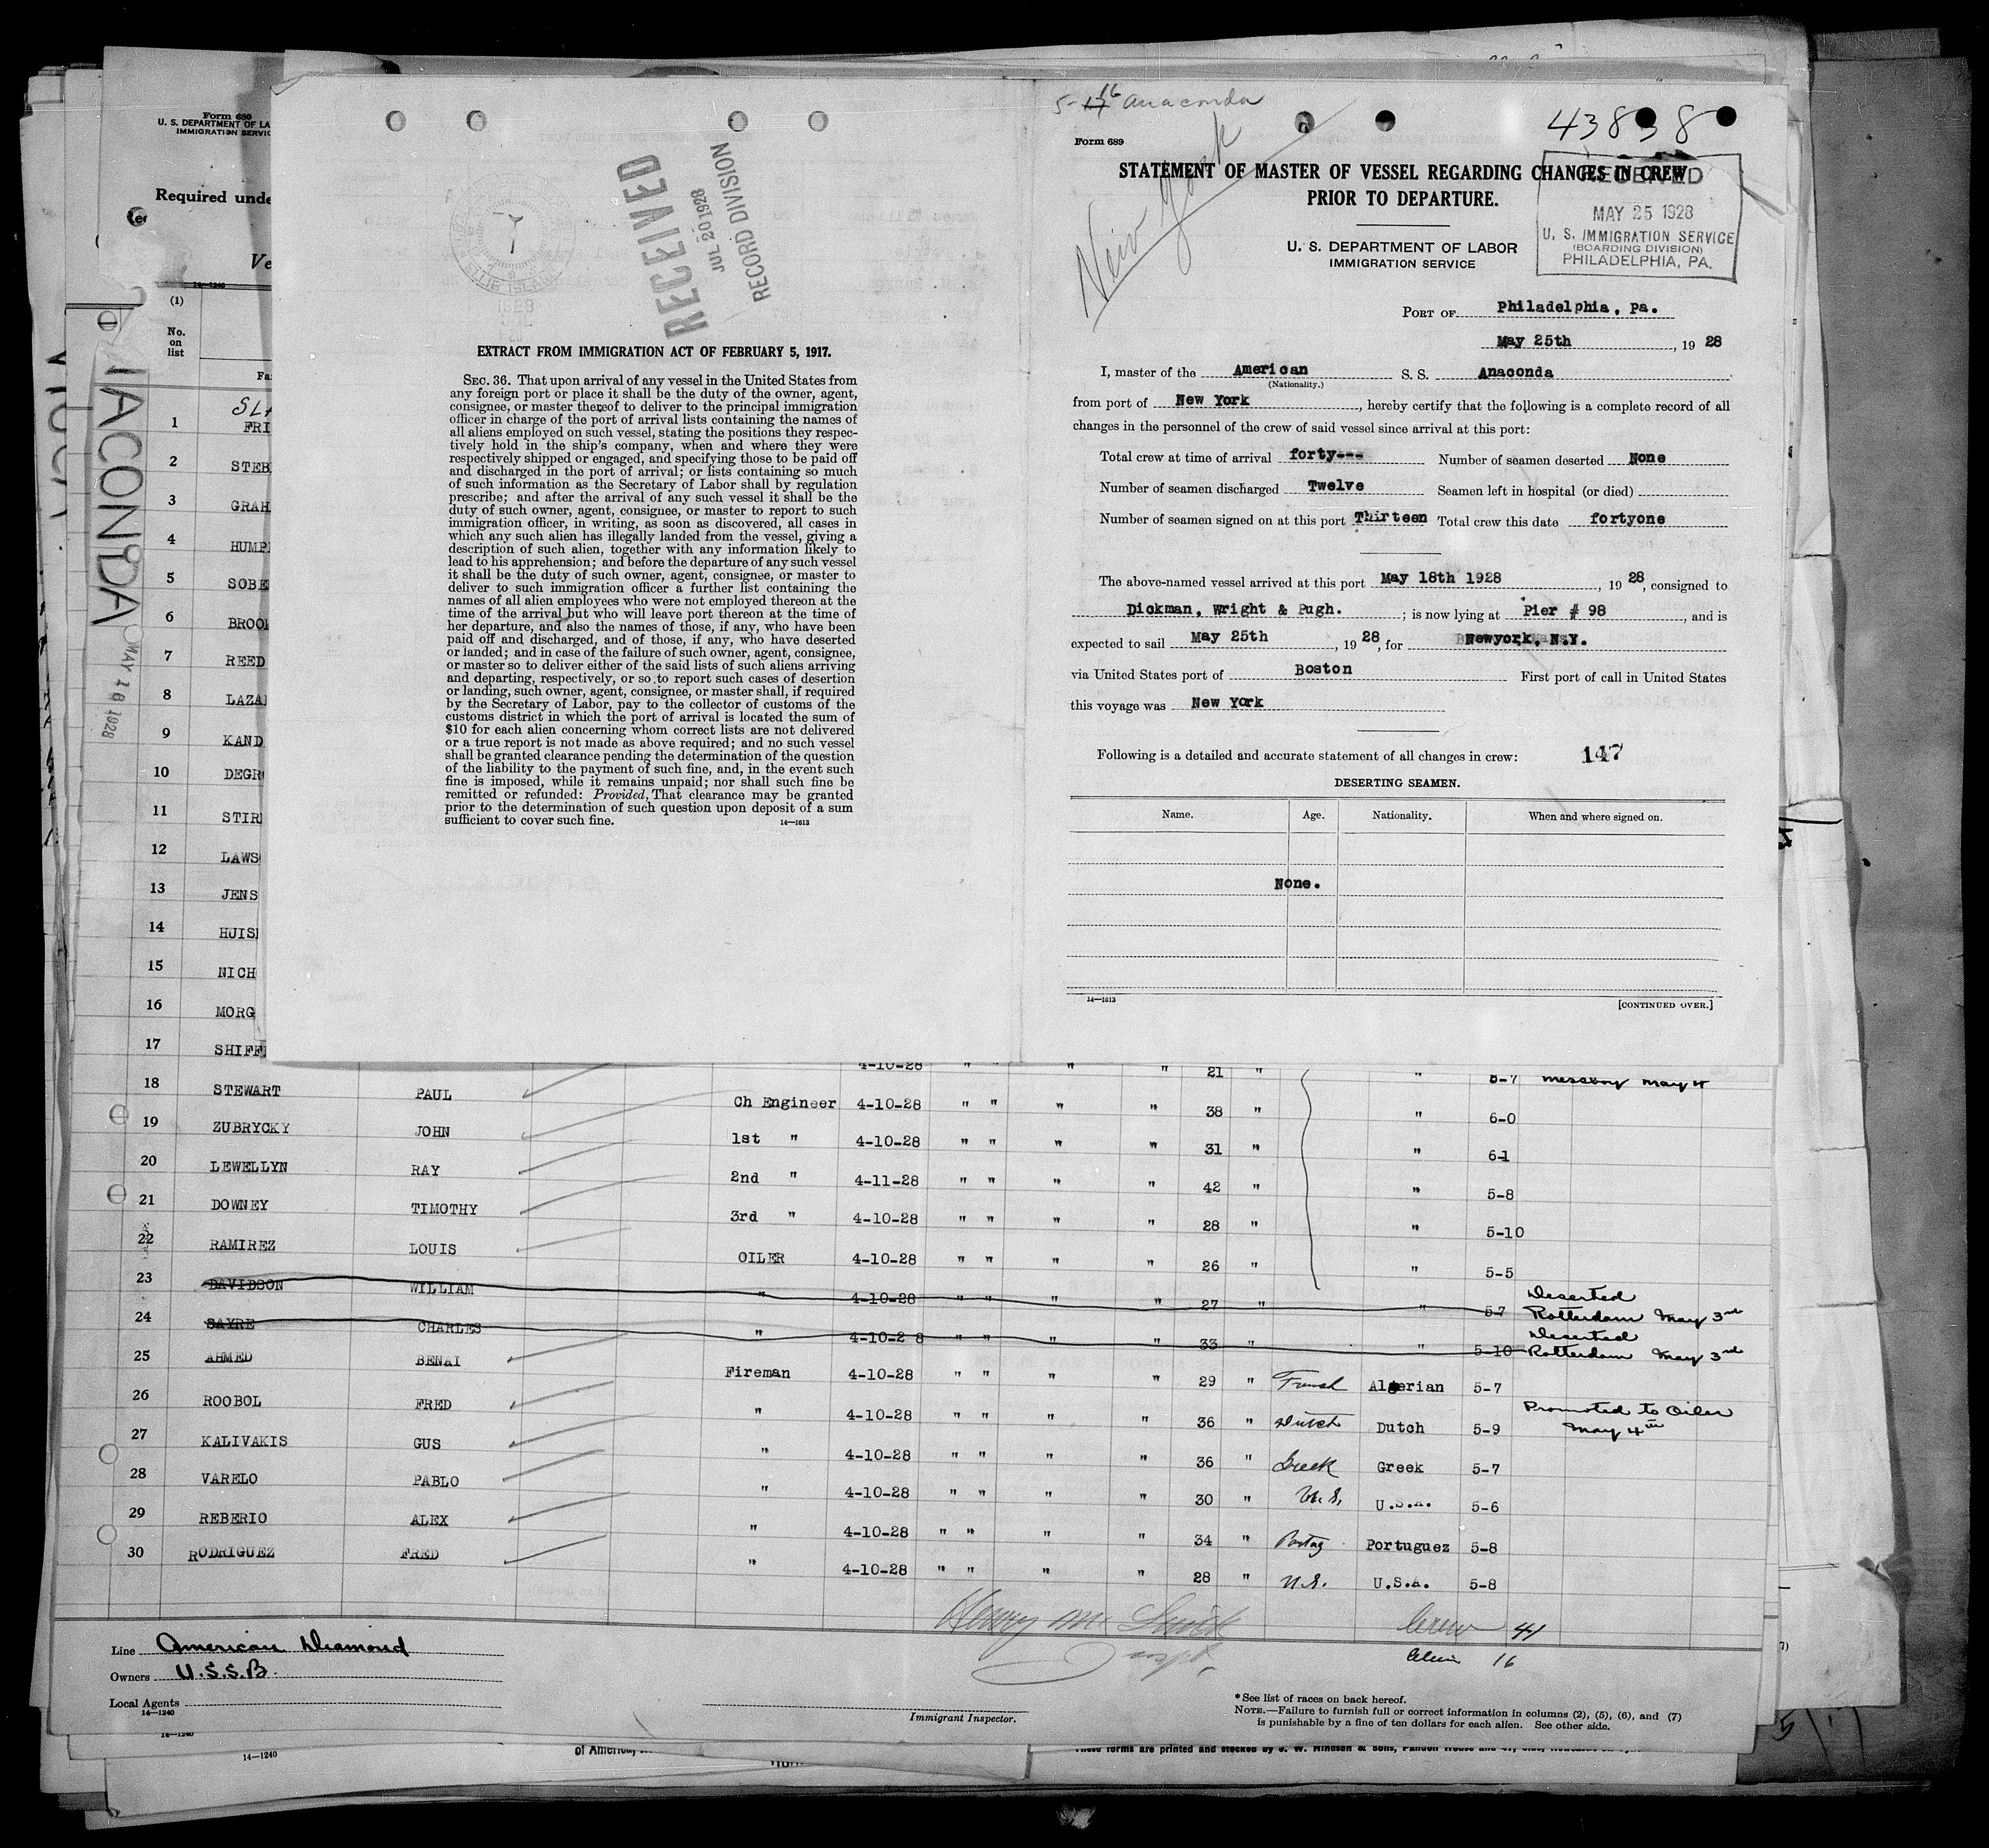 Form 689
U. S. DEPARTMENT OF LA
IMMIGRATION SERVIC
Required unde
Ve
14—1240
(1)
No.
on
list
Fa
ANACONDA
MAY 18 1928
1 FRI
2 STEB
3 GRAH
4 HUMP
5 SOBE
6 BROO
7 REED
8 LAZA
9 KAND
10 DEGR
11 STIR
12 LAWS
13 JENS
14 HUIS
15 NICH
16 MORG
17 SHIFF
RECEIVED
JUL 20 1928
RECORD DIVISION
ELLIS ISLAND
1928
EXTRACT FROM IMMIGRATION ACT OF FEBRUARY 5, 1917.
SEC. 36. That upon arrival of any vessel in the United States from
any foreign port or place it shall be the duty of the owner, agent,
consignee, or master thereof to deliver to the principal immigration
officer in charge of the port of arrival lists containing the names of
all aliens employed on such vessel, stating the positions they respec-
tively hold in the ship's company, when and where they were
respectively shipped or engaged, and specifying those to be paid off
and discharged in the port of arrival; or lists containing so much
of such information as the Secretary of Labor shall by regulation
prescribe; and after the arrival of any such vessel it shall be the
duty of such owner, agent, consignee, or master to report to such
immigration officer, in writing, as soon as discovered, all cases in
which any such alien has illegally landed from the vessel, giving a
description of such alien, together with any information likely to
lead to his apprehension; and before the departure of any such vessel
it shall be the duty of such owner, agent, consignee, or master to
deliver to such immigration officer a further list containing the
names of all alien employees who were not employed thereon at the
time of the arrival but who will leave port thereon at the time of
her departure, and also the names of those, if any, who have been
paid off and discharged, and of those, if any, who have deserted
or landed; and in case of the failure of such owner, agent, consignee,
or master so to deliver either of the said lists of such aliens arriving
and departing, respectively, or so to report such cases of desertion
or landing, such owner, agent, consignee, or master shall, if required
by the Secretary of Labor, pay to the collector of customs of the
customs district in which the port of arrival is located the sum of
$10 for each alien concerning whom correct lists are not delivered
or a true report is not made as above required; and no such vessel
shall be granted clearance pending the determination of the question
of the liability to the payment of such fine, and, in the event such
fine is imposed, while it remains unpaid; nor shall such fine be
remitted or refunded: Provided, That clearance may be granted
prior to the determination of such question upon deposit of a sum
sufficient to cover such fine.
14—1613
5-16 Anaconda
43838
Form 689
New York
STATEMENT OF MASTER OF VESSEL REGARDING CHANGES IN CREW
PRIOR TO DEPARTURE.
U. S. DEPARTMENT OF LABOR
IMMIGRATION SERVICE
RECEIVED
MAY 25 1928
U. S. IMMIGRATION SERVICE
(BOARDING DIVISION)
PHILADELPHIA, PA.
PORT OF Philadelphia, Pa.
May 25th, 19 28
I, master of the American S. S. Anaconda
(Nationality.)
from port of New York, hereby certify that the following is a complete record of all
changes in the personnel of the crew of said vessel since arrival at this port:
Total crew at time of arrival forty--- Number of seamen deserted None
Number of seamen discharged Twelve Seamen left in hospital (or died)
Number of seamen signed on at this port Thirteen Total crew this date fortyone
The above-named vessel arrived at this port May 18th 1928, 19 28, consigned to
Dickman, Wright & Pugh. ; is now lying at Pier # 98, and is
expected to sail May 25th, 19 28, for Newyork, N.Y.
via United States port of Boston First port of call in United States
this voyage was New York
Following is a detailed and accurate statement of all changes in crew: 147
DESERTING SEAMEN.
Name. Age. Nationality. When and where signed on.
None.
14—1613
[CONTINUED OVER.]
4-10-28 " " " " 21 " " 5-7 messboy May 4
18 STEWART PAUL Ch Engineer 4-10-28 " " " " 38 " " 6-0
19 ZUBRYCKY JOHN 1st " 4-10-28 " " " " 31 " " 6-1
20 LEWELLYN RAY 2nd " 4-11-28 " " " " 42 " " 5-8
21 DOWNEY TIMOTHY 3rd " 4-10-28 " " " " 28 " " 5-10
22 RAMIREZ LOUIS OILER 4-10-28 " " " " 26 " " 5-5
23 DAVIDSON WILLIAM " 4-10-28 " " " " 27 " " 5-7 Deserted
Rotterdam May 3rd
24 SAYRE CHARLES " 4-10-28 " " " " 33 " " 5-10 Deserted
Rotterdam May 3rd
25 AHMED BENAI Fireman 4-10-28 " " " " 29 " French Algerian 5-7
26 ROOBOL FRED " 4-10-28 " " " " 36 " Dutch Dutch 5-9 Promoted to Oiler
May 4th
27 KALIVAKIS GUS " 4-10-28 " " " " 36 " Greek Greek 5-7
28 VARELO PABLO " 4-10-28 " " " " 30 " U.S. U.S.A. 5-6
29 REBERIO ALEX " 4-10-28 " " " " 34 " Portug Portuguez 5-8
30 RODRIGUEZ FRED " 4-10-28 " " " " 28 " U.S. U.S.A. 5-8
Crew 41
16
Line American Diamond
Owners U.S.S.B.
Local Agents
14—1240
Immigrant Inspector.
* See list of races on back hereof.
NOTE.—Failure to furnish full or correct information in columns (2), (5), (6), and (7)
is punishable by a fine of ten dollars for each alien. See other side.
14—1240
14—1240
of America,
These forms are printed and stocked by